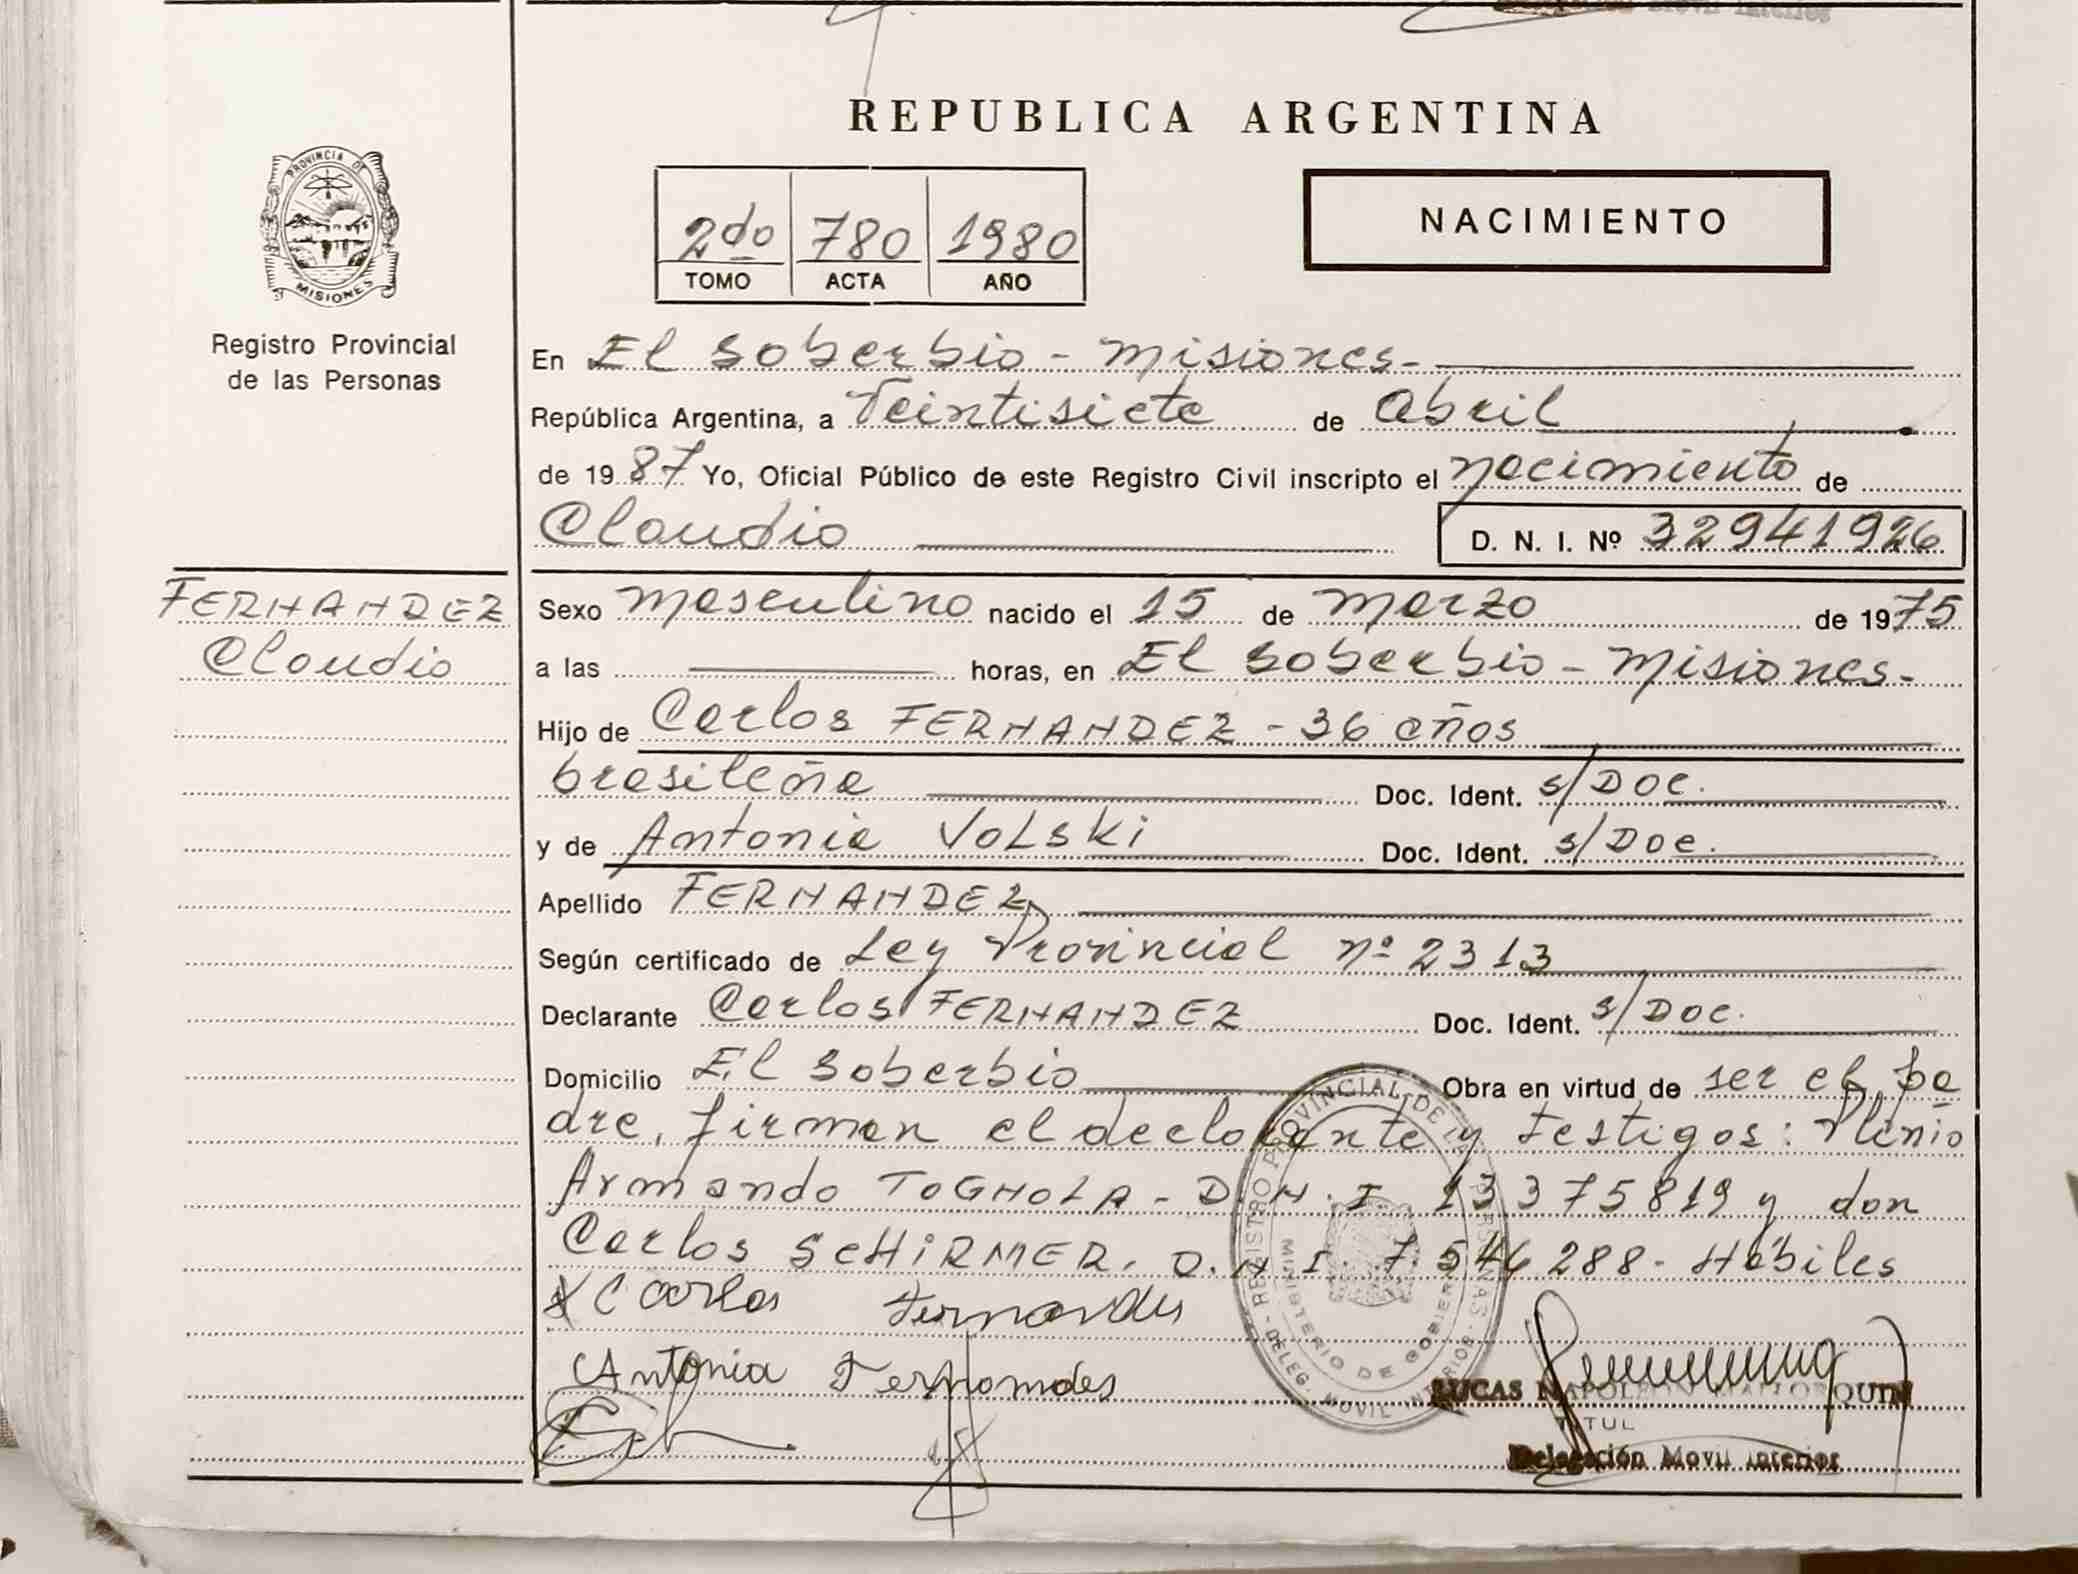 Delegación Movil Interior
REPUBLICA ARGENTINA
PROVINCIA DE
MISIONES
Registro Provincial
de las Personas
2do 780 1980
TOMO ACTA AÑO
NACIMIENTO
En El Soberbio - Misiones-
República Argentina, a Veintisiete de Abril
de 1987 Yo, Oficial Público de este Registro Civil inscripto el nacimiento de
Claudio D. N. I. Nº 32941926
FERNANDEZ
Claudio
Sexo masculino nacido el 15 de marzo de 1975
a las horas, en El Soberbio - Misiones-
Hijo de Carlos FERNANDEZ - 36 años
brasileña Doc. Ident. s/Doc.
y de Antonia Volski Doc. Ident. s/Doc.
Apellido FERNANDEZ
Según certificado de Ley Provincial nº 2313
Declarante Carlos FERNANDEZ Doc. Ident. s/Doc.
Domicilio El Soberbio Obra en virtud de ser el pa
dre, firman el declarante y testigos: Plinio
Armando TOGNOLA - D.N.I 13375819 y don
Carlos SCHIRMER. D.N.I. 7.546288- Hábiles
X Carlos Fernandes
Antonia Fernandes
REGISTRO PROVINCIAL DE LAS PERSONAS
DELEG. MOVIL INTERIOR
MINISTERIO DE GOBIERNO
LUCAS NAPOLEON MALLORQUIN
TITUL
Delegación Movil Interior